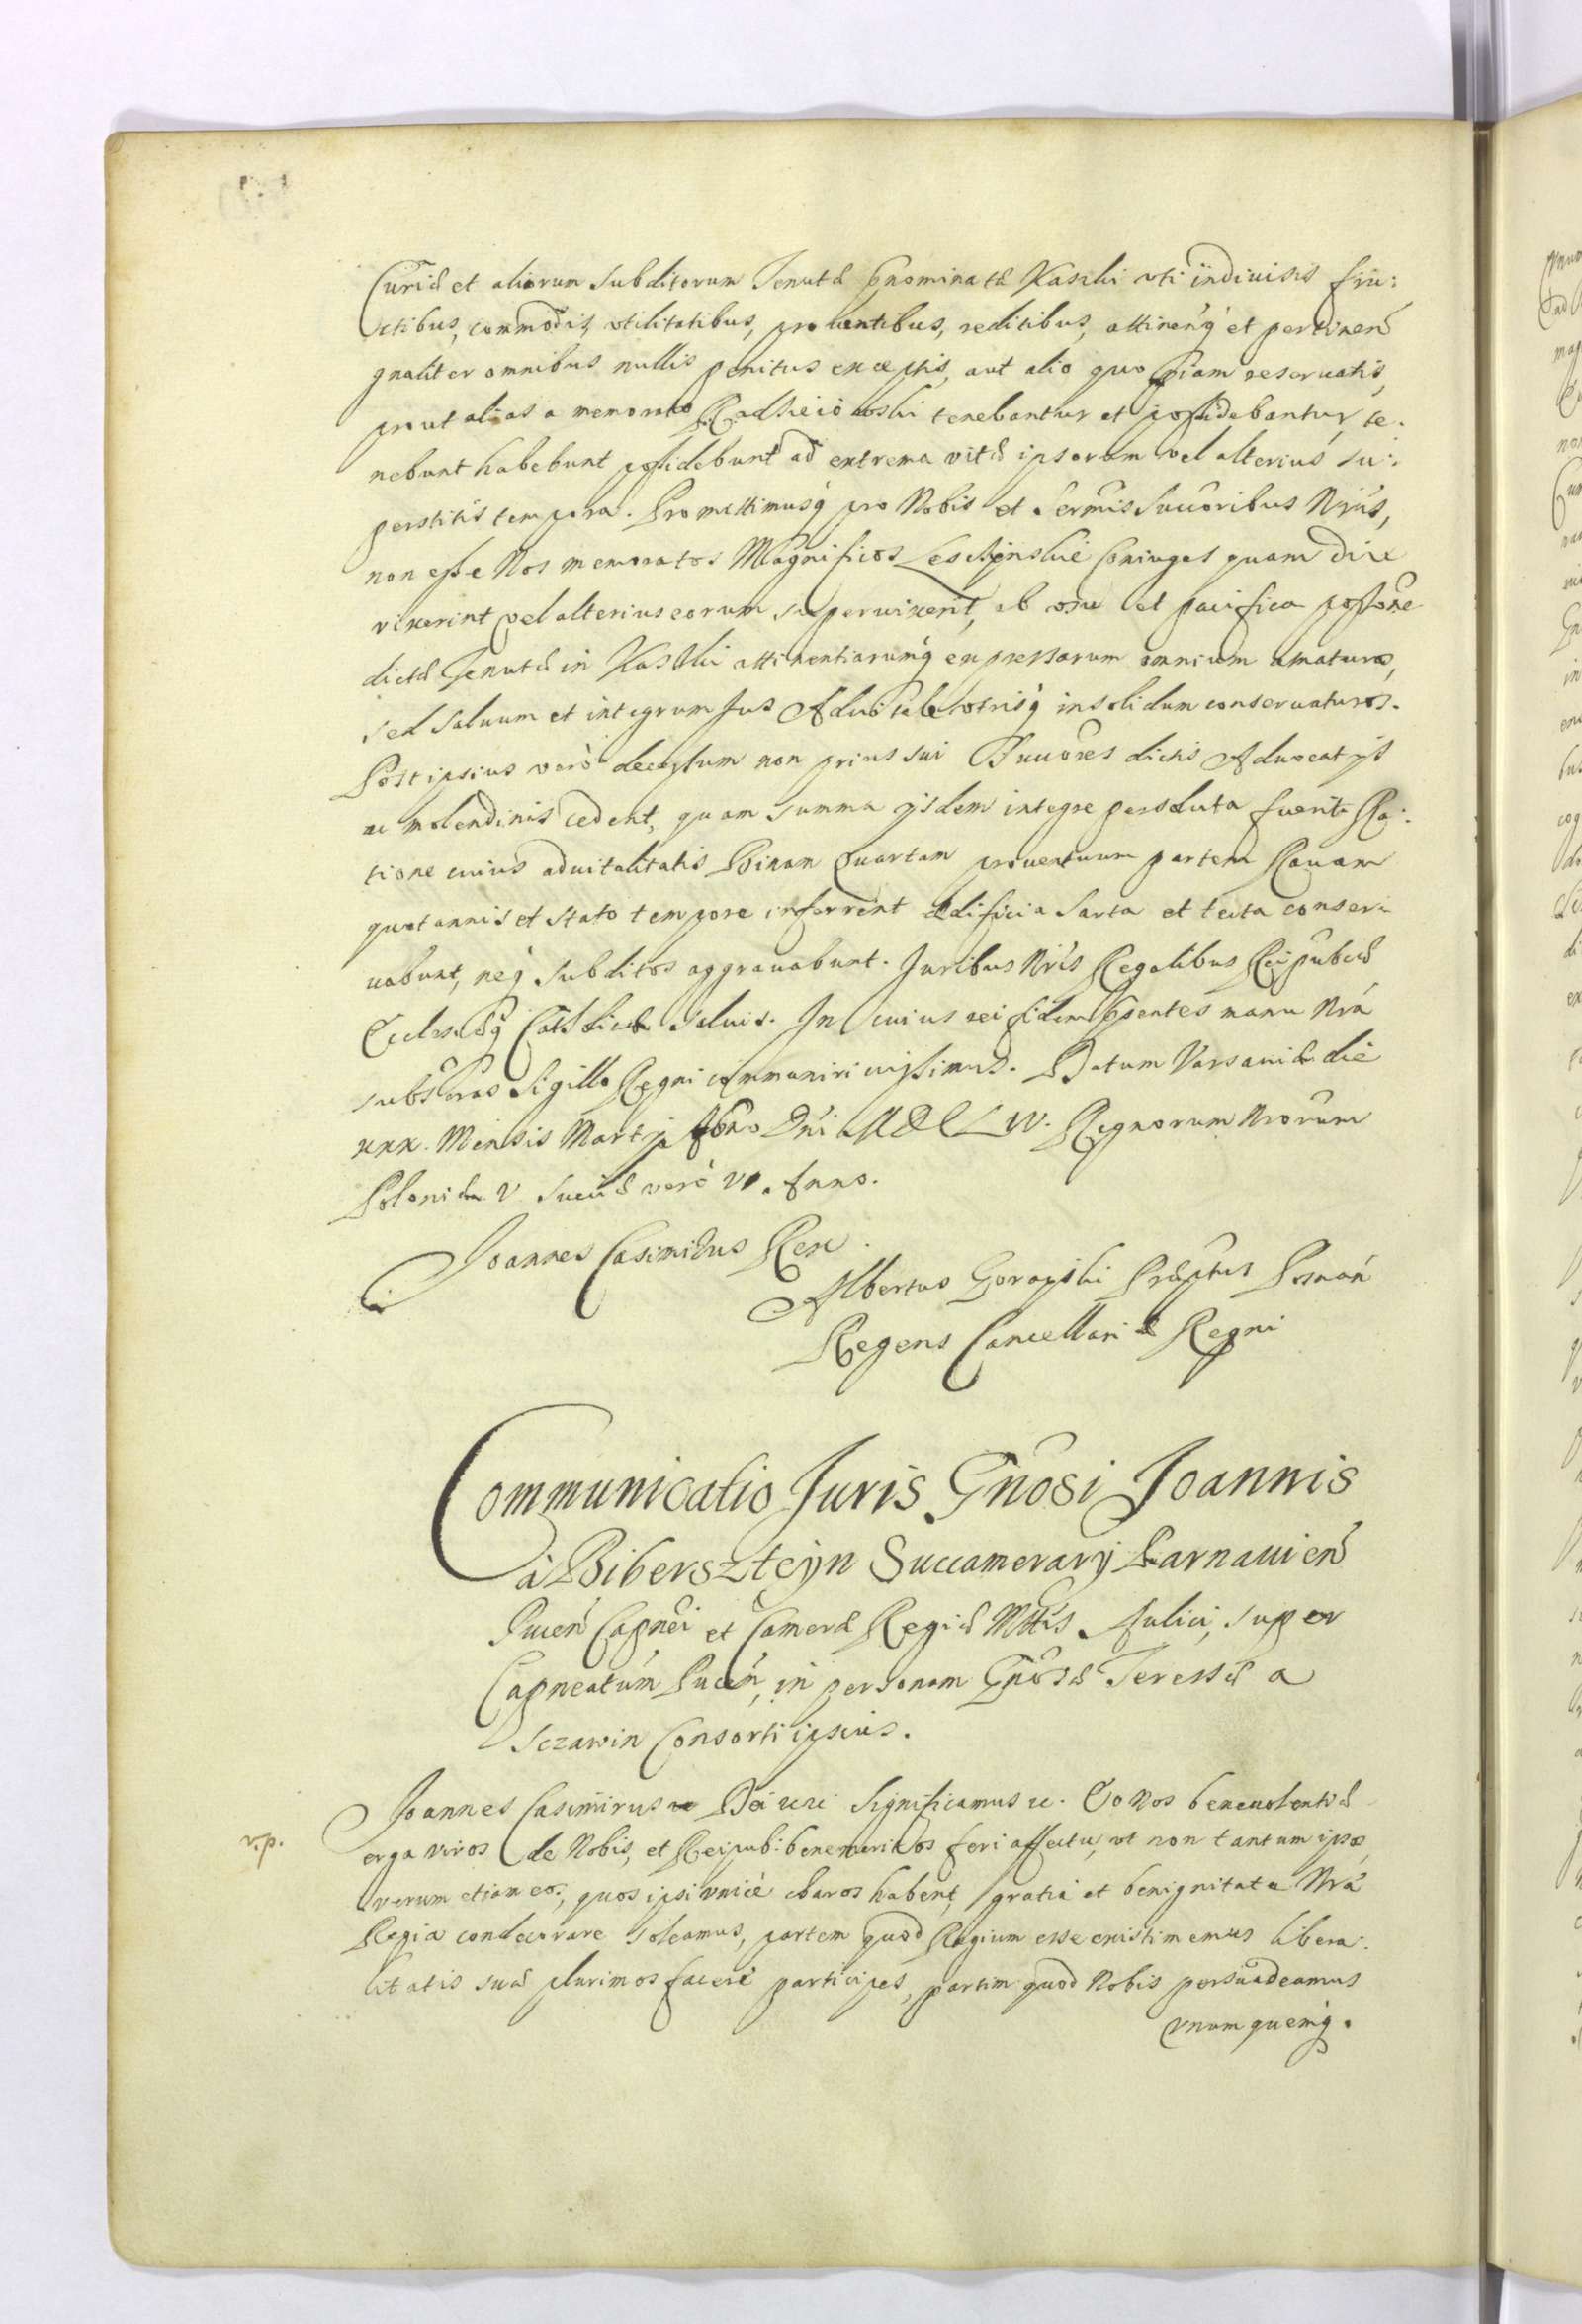 Curiæ et aliorum subditorum Tenutæ prænominatæ Kaszki vti indiuisis fru:
ctibus, commodis vtilitatibus, prouentibus, reditibus, attinen̄q et pertinen̄
gnaliter omnibus nullis penitus exceptis, aut alio quopiam reseruatis,
prout alias a memorato tenebantur et possidebantur, te.
nebunt habebunt possidebunt ad extrema vitæ ipsorum vel alterius su:
perstitis tempora. Promittimusq pro Nobis et Sermis Succoribus Nris,
non esse Nos memoratos Magnificos Leszczynskie Coniuges quam diu
vixerint vel alterius eorum superuixerit, ab vsu et pacifica possone
dictæ Tenutæ in Kaszki attinentiarumq expressarum omnium amoturos,
sed saluum et integrum Jus Aduitale vtrisq insolidum conseruaturos.
Post ipsius verò decessum non prius sui Succores dictis Aduocatijs
ac molendinis cedent, quam summa ijsdem integre persoluta fuerit. Ra:
tione cuius aduitalitatis Binam Quartam prouentuum partem Rauam
quotannis et stato tempore inferrent ædificia sarta et tecta conser:
uabunt, neq subditos aggrauabunt. Juribus Nris Regalibus Reipubcæ
Ecclesiæq Catholicæ saluis. In cuius rei fidem psentes manu Nra
subscras Sigillo Regni communiri iussimus. Datum Varsauiæ die
xxx. Mensis Martij Anno Dni MDCLIV. Regnorum Nrorum
Poloniæ V Sueciæ verò VI. Anno.
Joannes Casimirus Rex.
Albertus Gorayski Præptus Posnan̄
Regens Cancellariæ Regni
Communicatio Juris Gnosi Joannis
à Biberszteyn Succamerarij Parnauien̄
Pucen̄ Capnei et Cameræ Regiæ Mttis Aulici, super
Capneatum Pucen̄, in personam Gnosæ Teressæ a
Sczawin Consorti ipsius.
v.p.
Joannes Casimirus Dei etc: Significamus etc. Eo Nos beneuolentiæ
erga viros de Nobis, et Reipub: benemeritos feri affectu, vt non tantum ipsos,
verum etiam eos, quos ipsi vnicè charos habent, gratia et benignitate Nra
Regia condecorare soleamus, partem quod Regium esse existimemus libera:
litatis suæ plurimos facere participes, partim quod Nobis persuadeamus
vnumquemq.